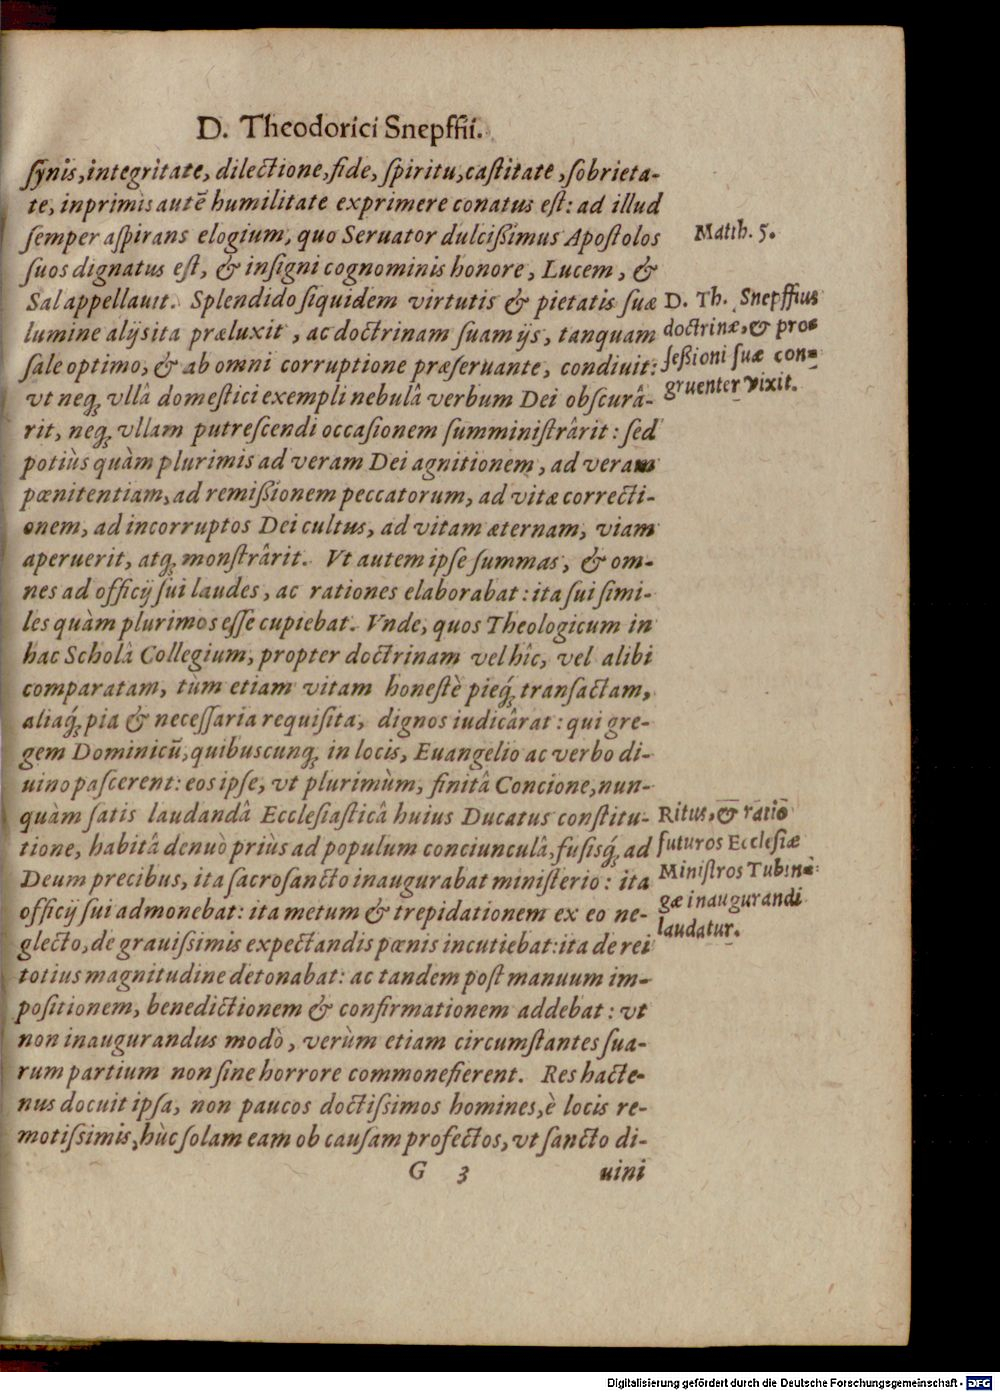 D. Theodorici Snepffii.
ſynis, integritate, dilectione, fide, ſpiritu, caſtitate, ſobrieta-
te, inprimis autē humilitate exprimere conatus eſt: ad illud
ſemper aſpirans elogium, quo Seruator dulcißimus Apoſtolos
ſuos dignatus eſt, & inſigni cognominis honore, Lucem, &
Sal appellauit. Splendido ſiquidem virtutis & pietatis ſuæ
lumine alijs ita præluxit, ac doctrinam ſuam ijs, tanquam
ſale optimo, & ab omni corruptione præſeruante, condiuit:
vt neq; vllâ domeſtici exempli nebulâ verbum Dei obſcurâ-
rit, neq; vllam putreſcendi occaſionem ſumminiſtrârit: ſed
potiùs quàm plurimis ad veram Dei agnitionem, ad veram
pœnitentiam, ad remißionem peccatorum, ad vitæ correcti-
onem, ad incorruptos Dei cultus, ad vitam æternam, viam
aperuerit, atq; monſtrârit. Vt autem ipſe ſummas, & om-
nes ad officij ſui laudes, ac rationes elaborabat: ita ſui ſimi-
les quàm plurimos eſſe cupiebat. Vnde, quos Theologicum in
hac Scholâ Collegium, propter doctrinam vel hîc, vel alibi
comparatam, tùm etiam vitam honeſtè pieq́; tranſactam,
aliaq́; pia & neceſſaria requiſita, dignos iudicârat: qui gre-
gem Dominicū, quibuscunq; in locis, Euangelio ac verbo di-
uino paſcerent: eos ipſe, vt plurimùm, finitâ Concione, nun-
quàm ſatis laudandâ Eccleſiaſticâ huius Ducatus conſtitu-
tione, habitâ denuò priùs ad populum conciunculâ, fuſisq́; ad
Deum precibus, ita ſacroſancto inaugurabat miniſterio: ita
officij ſui admonebat: ita metum & trepidationem ex eo ne-
glecto, de grauiſsimis expectandis pœnis incutiebat: ita de rei
totius magnitudine detonabat: ac tandem poſt manuum im-
poſitionem, benedictionem & confirmationem addebat: vt
non inaugurandus modò, verùm etiam circumſtantes ſua-
rum partium non ſine horrore commonefierent. Res hacte-
nus docuit ipſa, non paucos doctiſsimos homines, è locis re-
motiſsimis, hùc ſolam eam ob cauſam profectos, vt ſancto di-
G 3 uini
Matth. 5.
D. Th. Snepffius
doctrinæ, & pro-
feßioni ſuæ con-
gruenter vixit.
Ritus, & ratio
futuros Eccleſiæ
Miniſtros Tubin-
gæ inaugurandi
laudatur.
Digitalisierung gefördert durch die Deutsche Forschungsgemeinschaft - DFG